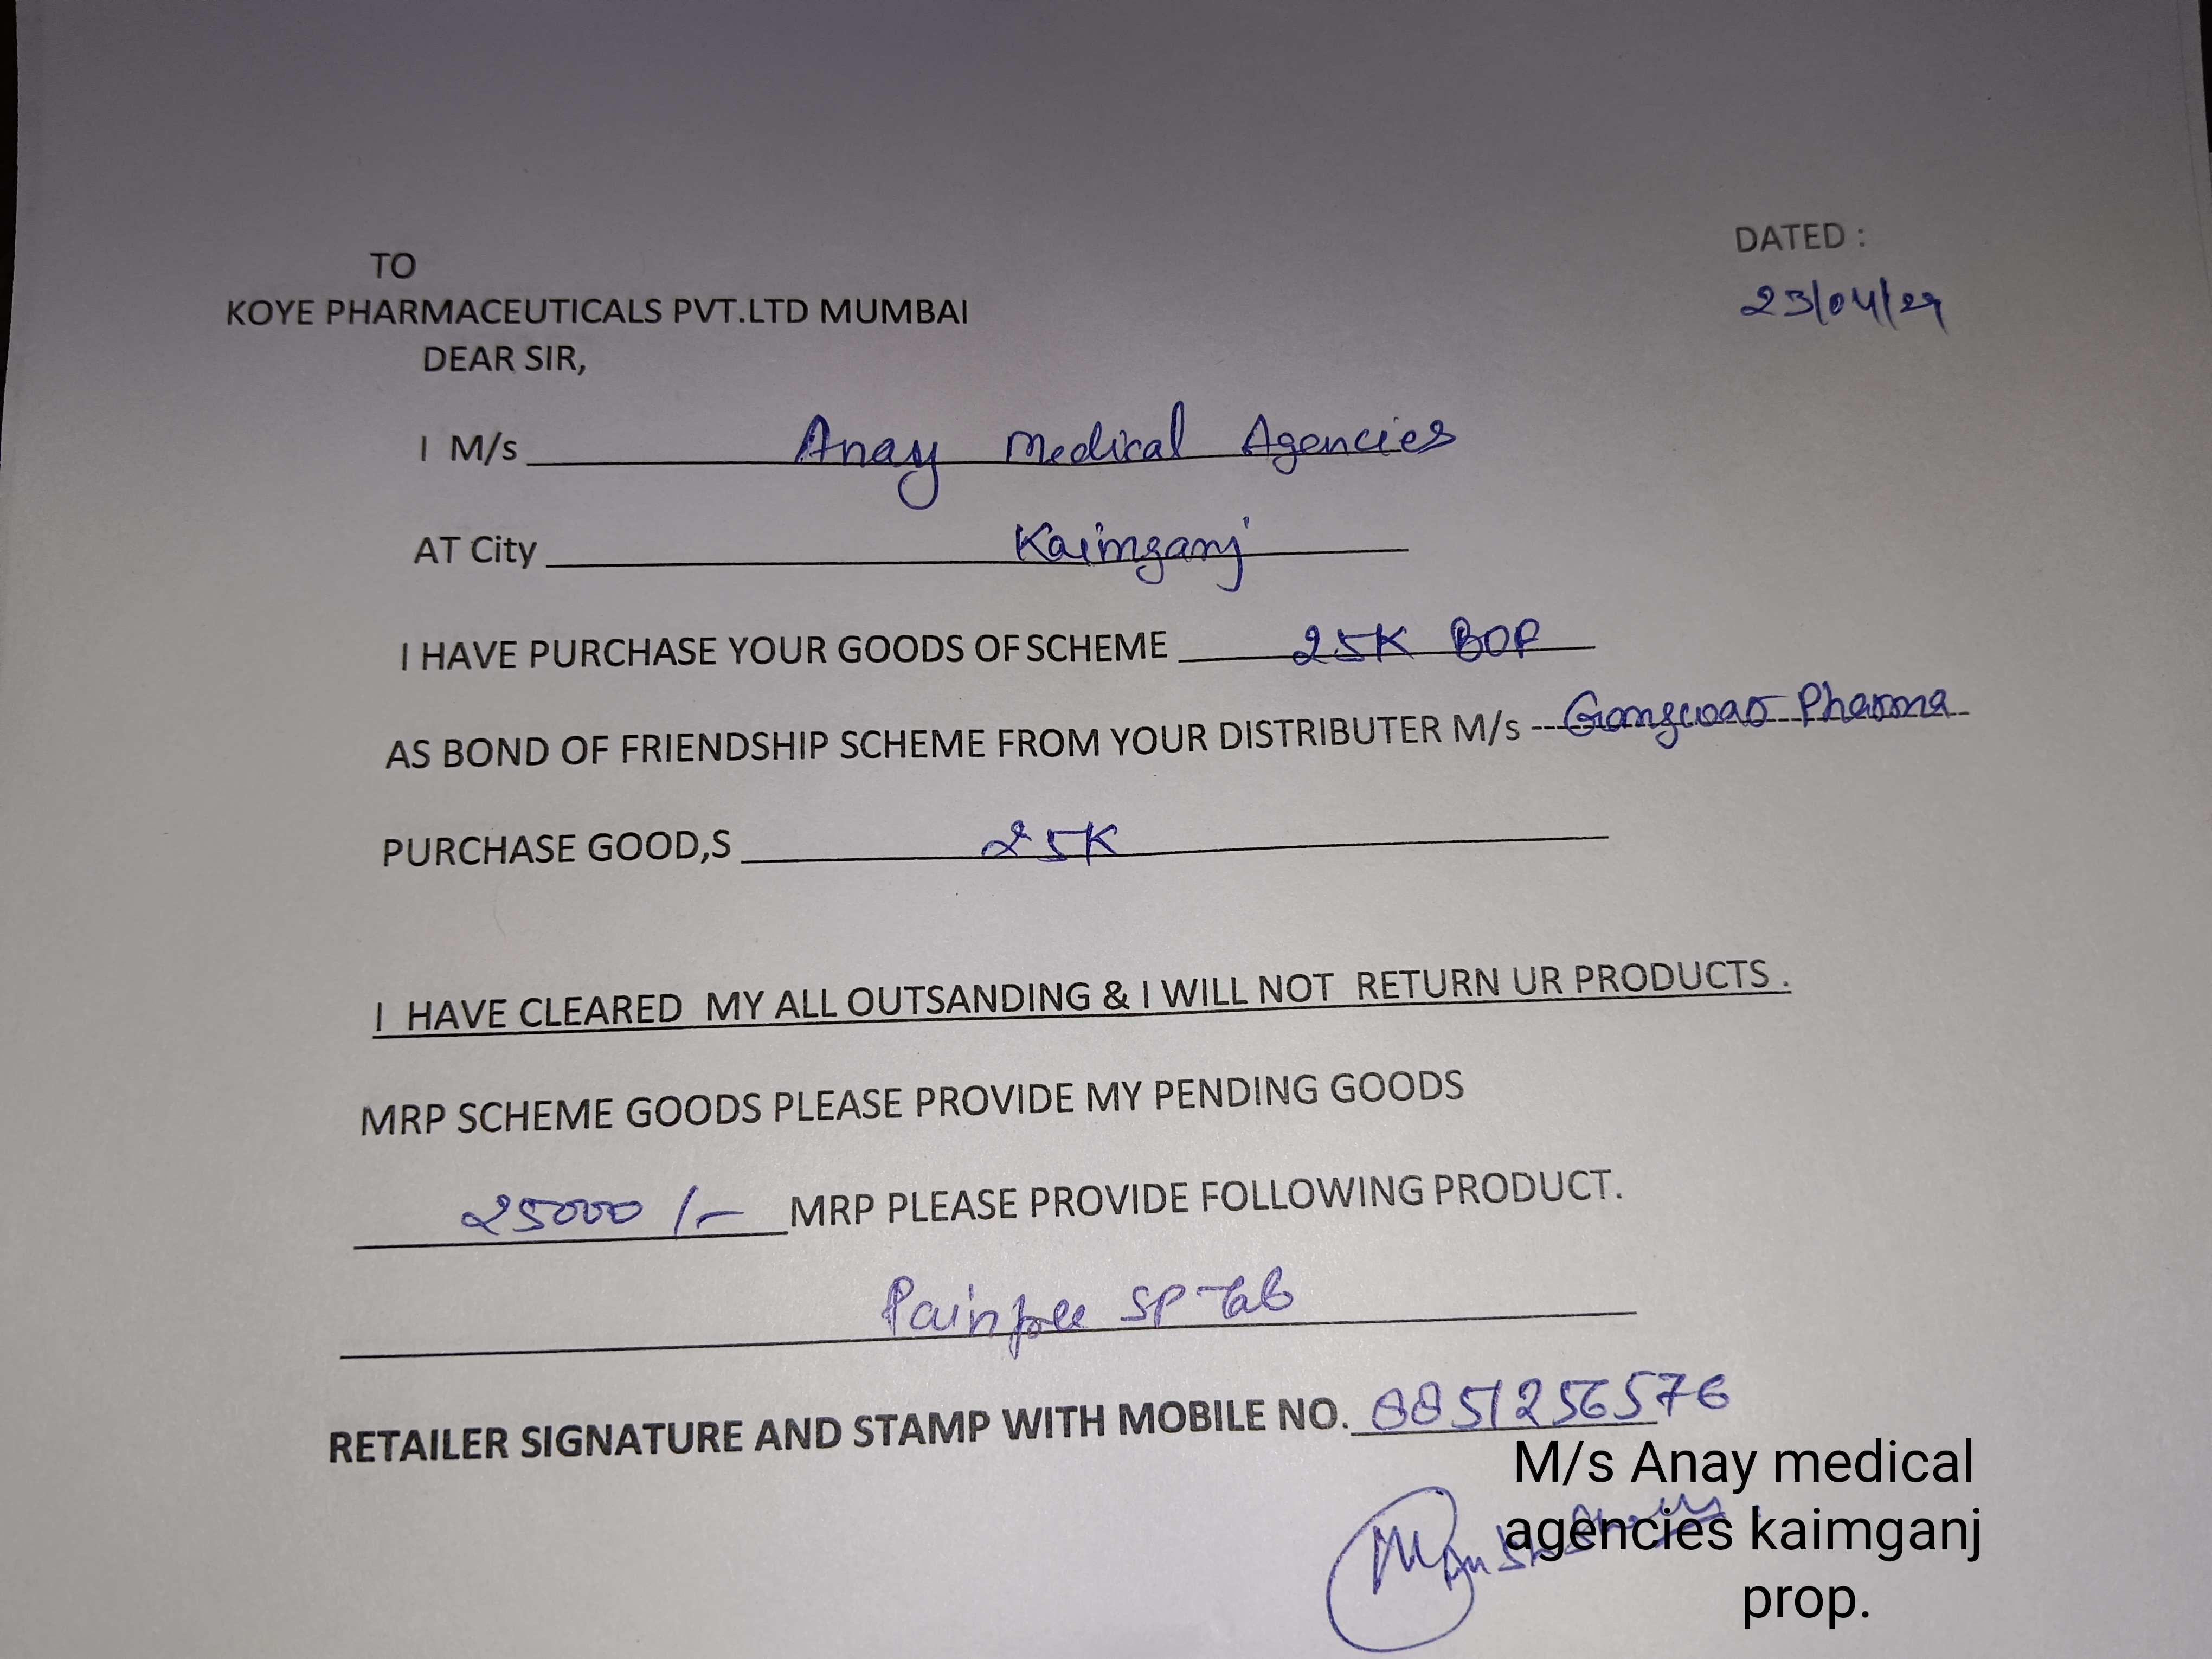 DATED :
23/04/24
TO
KOYE PHARMACEUTICALS PVT.LTD MUMBAI
DEAR SIR,
I M/s Anay Medical Agencies
AT City Kaimganj
I HAVE PURCHASE YOUR GOODS OF SCHEME 25K BOF
AS BOND OF FRIENDSHIP SCHEME FROM YOUR DISTRIBUTER M/s Gangwar Pharma
PURCHASE GOOD,S 25K
I HAVE CLEARED MY ALL OUTSANDING & I WILL NOT RETURN UR PRODUCTS .
MRP SCHEME GOODS PLEASE PROVIDE MY PENDING GOODS
25000 /- MRP PLEASE PROVIDE FOLLOWING PRODUCT.
Painfree SP Tab
RETAILER SIGNATURE AND STAMP WITH MOBILE NO. 8851256576
M/s Anay medical
agencies kaimganj
prop.